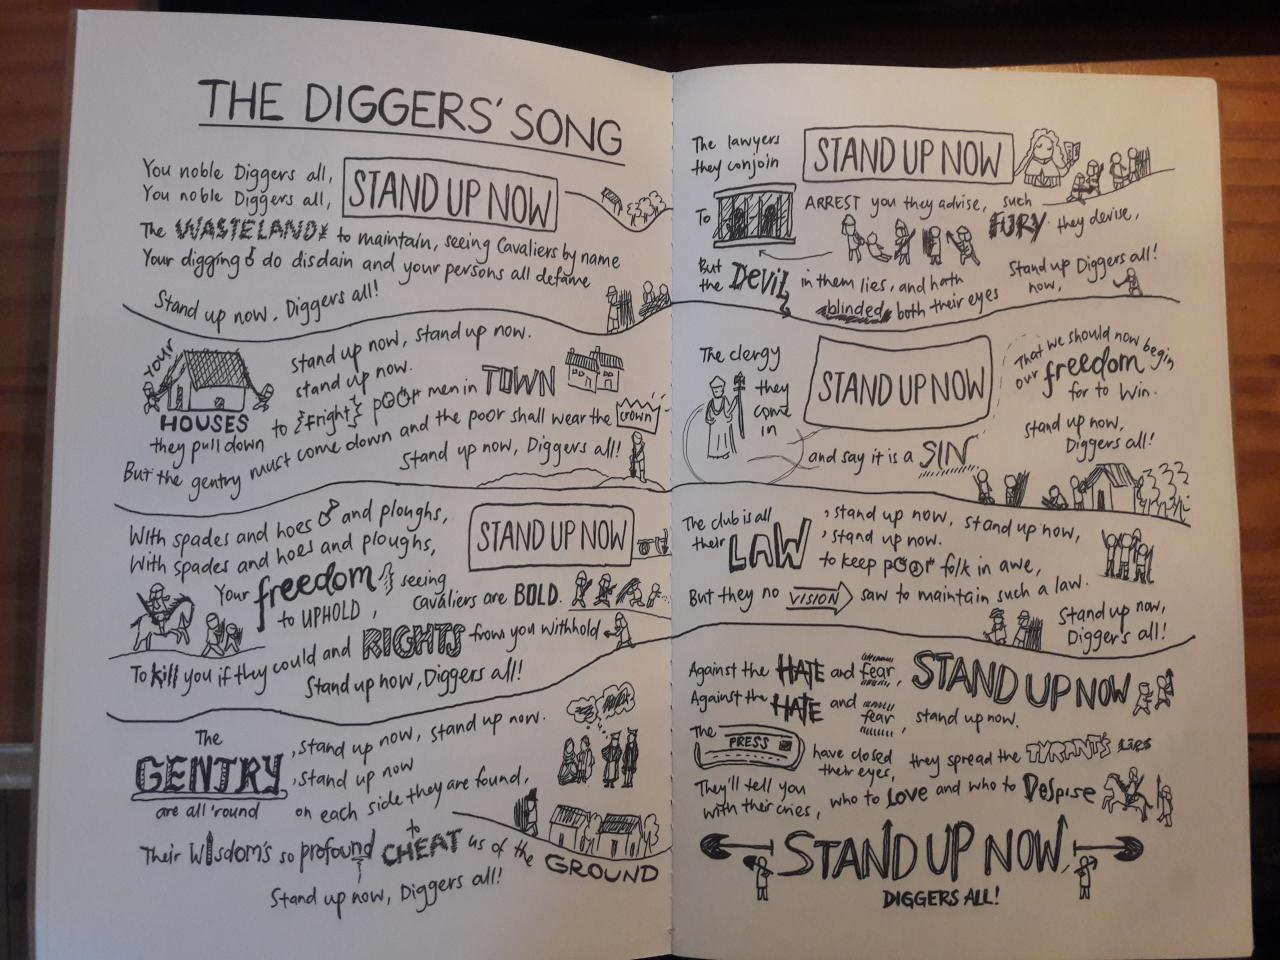 THE DIGGERS' SONG
You noble Diggers all,
You noble Diggers all,
STAND UP NOW
The WASTELAND to maintain, seeing Cavaliers by name
Your digging do disdain and your persons all defame
Stand up now, Diggers all!
YOUR
HOUSES
they pull down
stand up now, stand up now.
stand up now.
to fright poor men in TOWN
But the gentry must come down and the poor shall wear the crown
Stand up now, Diggers all!
With spades and hoes and ploughs,
With spades and hoes and ploughs,
STAND UP NOW
Your freedom, seeing
to UPHOLD, Cavaliers are BOLD.
To kill you if they could and RIGHTS from you withhold
Stand up now, Diggers all!
The
GENTRY
are all 'round
, stand up now, stand up now.
, stand up now
on each side they are found,
Their Wisdom's so profound to CHEAT us of the GROUND
Stand up now, Diggers all!
The lawyers
they conjoin
STAND UP NOW
To ARREST you they advise, such FURY they devise,
But the DEVIL in them lies, and hath
blinded both their eyes
Stand up Diggers all!
now,
The clergy
they
come
in
STAND UP NOW
and say it is a SIN
That we should now begin
our freedom
for to win.
Stand up now,
Diggers all!
The club is all
their LAW
, stand up now, stand up now,
, stand up now.
to keep poor folk in awe,
But they no VISION saw to maintain such a law.
Stand up now,
Digger's all!
Against the HATE and fear, STAND UP NOW
Against the HATE and fear, stand up now.
The PRESS have closed
their eyes, they spread the TYRANT'S LIES
They'll tell you
with their cries, who to LOVE and who to Despise
STAND UP NOW,
DIGGERS ALL!